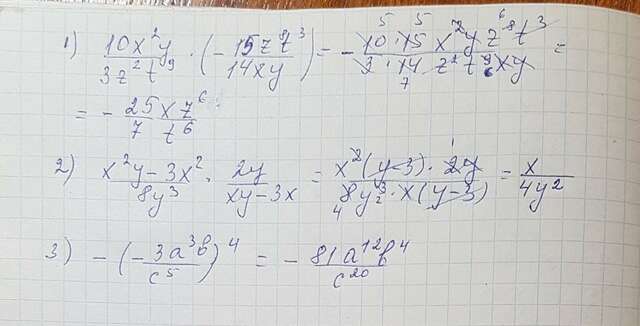 1) 10x²y / 3z²t⁹ · (- 15z⁸t³ / 14xy) = - 10·15x²yz⁸t³ / 3·14z²t⁹xy =
= - 25xz⁶ / 7t⁶
2) x²y-3x² / 8y³ · 2y / xy-3x = x²(y-3)·2y / 8y³·x(y-3) = x / 4y²
3) - (- 3a³b / c⁵)⁴ = - 81a¹²b⁴ / c²⁰